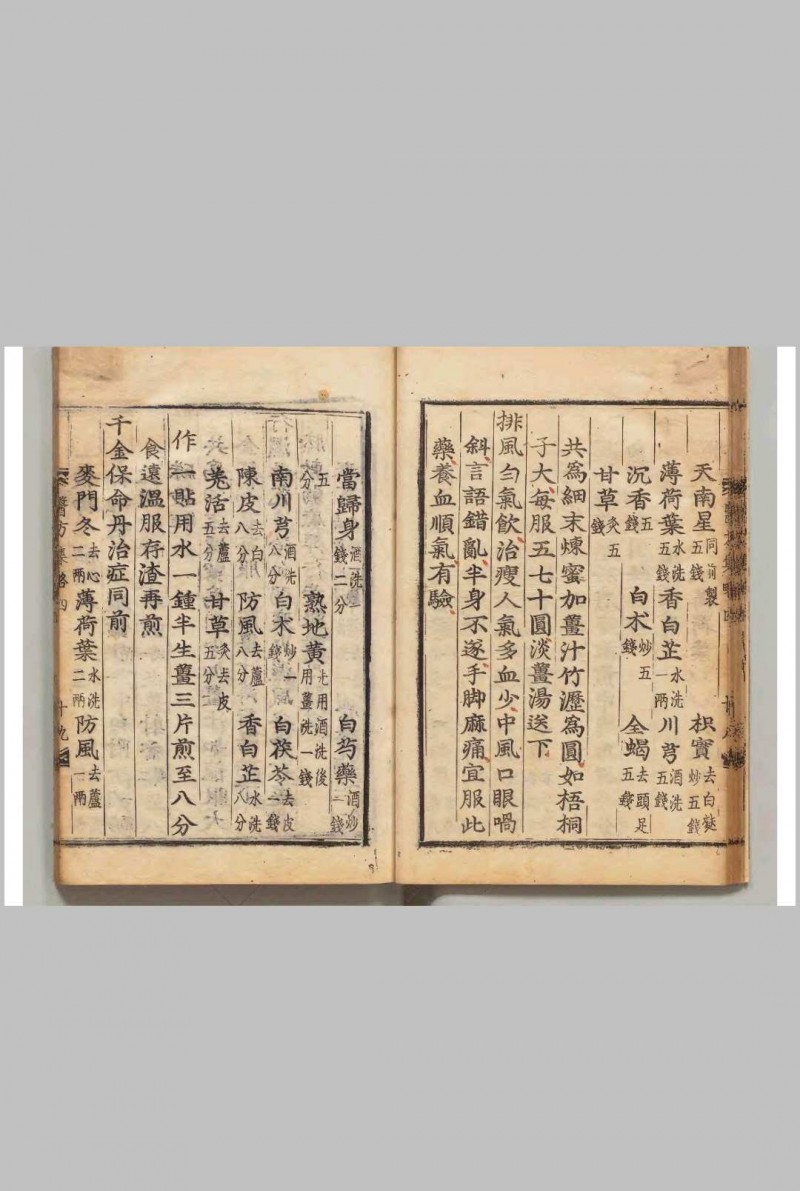 天南星同前製五錢 枳實去白麩炒五錢
薄荷葉水洗五錢 香白芷水洗一兩 川芎酒洗五錢
沉香五錢 白朮炒五錢 全蝎去頭足五錢
甘草炙五錢
共為細末煉蜜加薑汁竹瀝為圓如梧桐
子大每服五七十圓淡薑湯送下
排風勻氣飲治瘦人氣多血少中風口眼喎
斜言語錯亂半身不遂手脚麻痛宜服此
藥養血順氣有驗
當歸身酒洗一錢二分 白芍藥酒炒一錢
五分 熟地黃先用酒洗後用薑洗一錢
南川芎酒洗八分 白朮炒一錢 白茯苓去皮一錢
陳皮去白八分 防風去蘆八分 香白芷水洗八分
羌活去蘆五分 甘草炙去皮五分
作一貼用水一鍾半生薑三片煎至八分
食遠溫服存渣再煎
千金保命丹治症同前
麥門冬去心二兩 薄荷葉水洗二兩 防風去蘆一兩
醫方集略四 十九